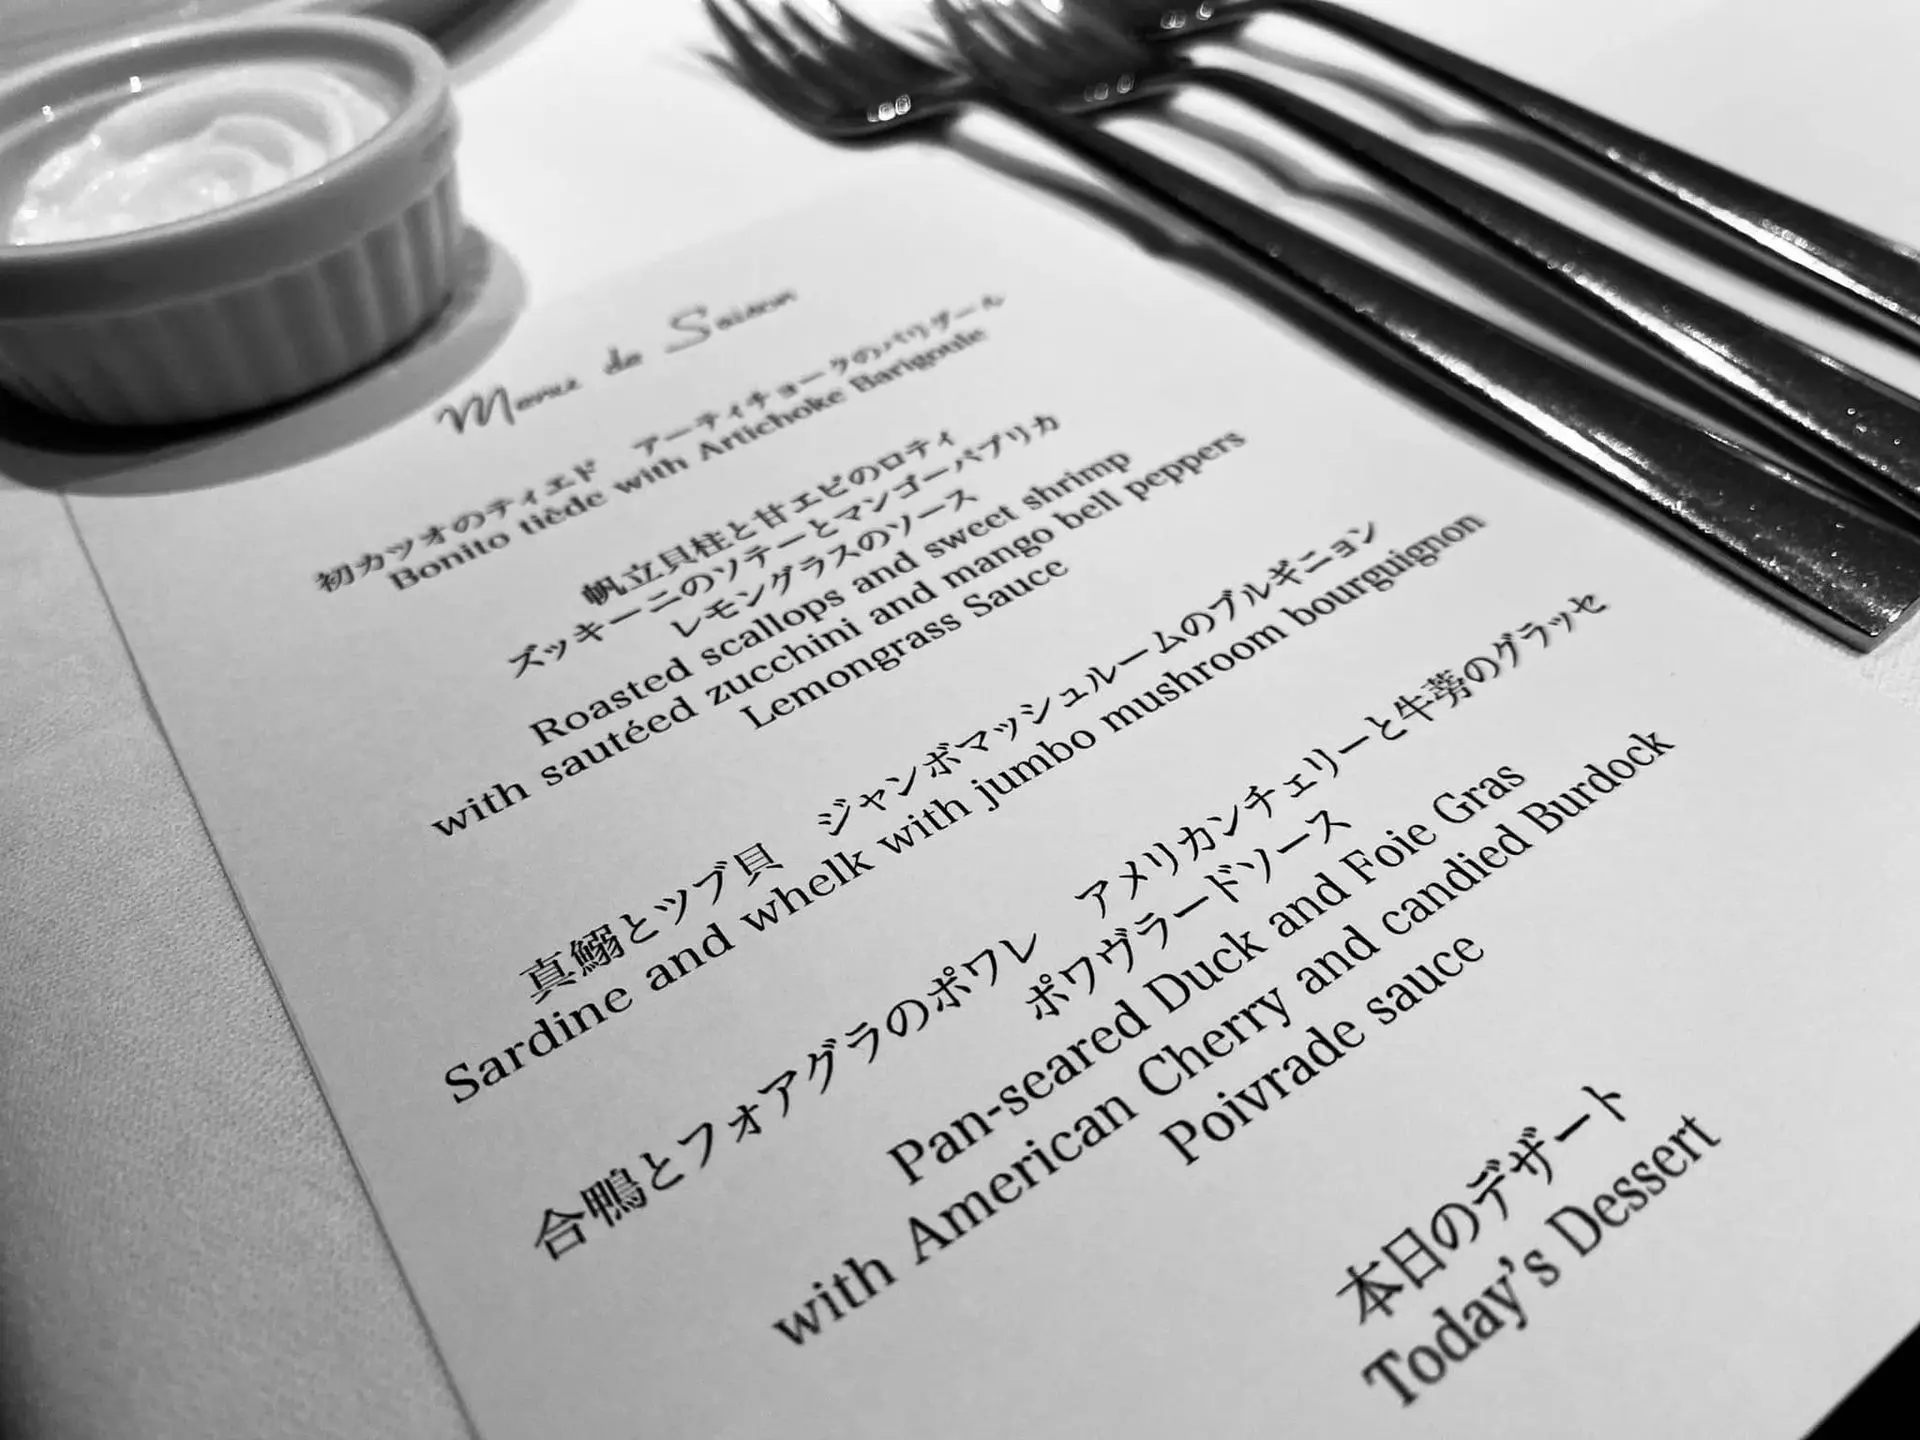 Menu de Saison
初カツオのティエド　アーティチョークのバリグール
Bonito tiède with Artichoke Barigoule
帆立貝柱と甘エビのロティ
ズッキーニのソテーとマンゴーパプリカ
レモングラスのソース
Roasted scallops and sweet shrimp
with sautéed zucchini and mango bell peppers
Lemongrass Sauce
真鰯とツブ貝　ジャンボマッシュルームのブルギニョン
Sardine and whelk with jumbo mushroom bourguignon
合鴨とフォアグラのポワレ　アメリカンチェリーと牛蒡のグラッセ
ポワヴラードソース
Pan-seared Duck and Foie Gras
with American Cherry and candied Burdock
Poivrade sauce
本日のデザート
Today's Dessert